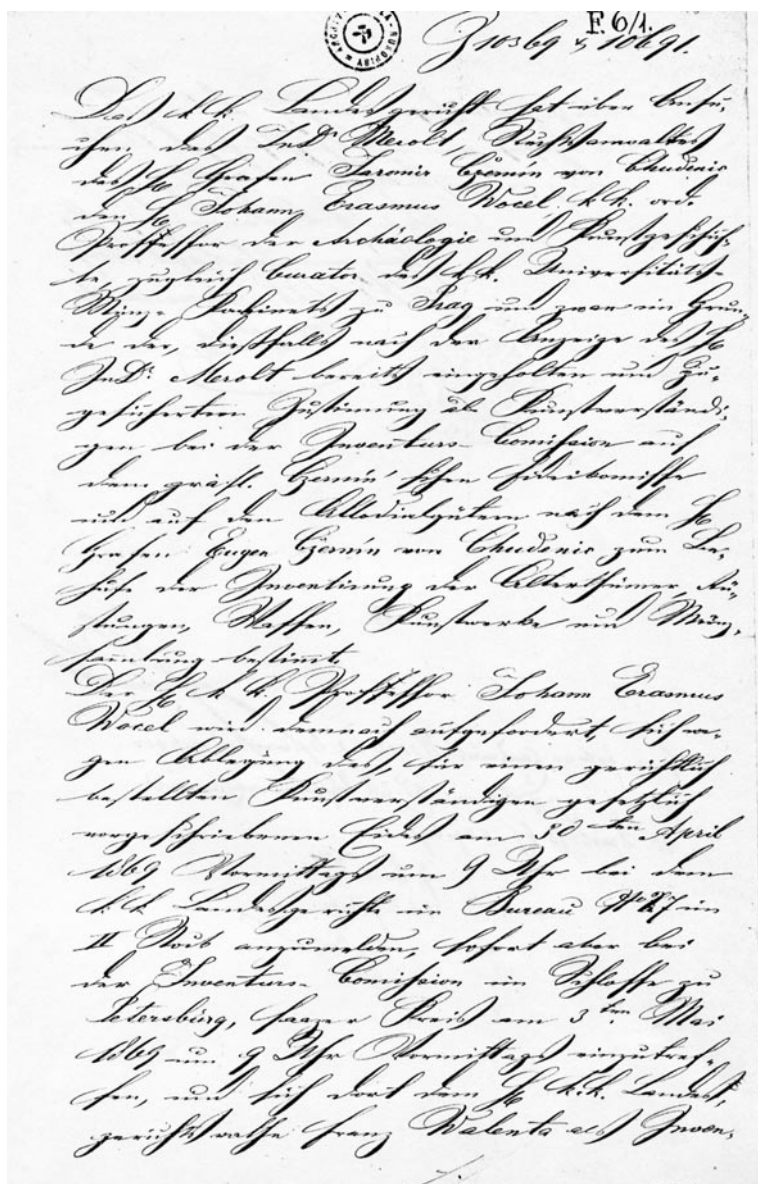 F. 6/1.
Z 10369 & 10691.
Das k.k. Landesgericht hat über Ansu-
chen des JuDr Merolt, Rechtsanwaltes
des H Grafen Jaromir Czernin von Chudenic
den H Johann Erasmus Wocel, k.k. ord.
Professor der Archäologie und Kunstgeschich-
te, zugleich Curator des k.k. Universitäts-
Münz-Kabinets zu Prag und zwar im Grun-
de der, dießfalls nach der Anzeige des H
JuDr. Merolt bereits eingeholten und zu-
gesicherten Zustimmung als Kunstverständi-
gen bei der Inventurs-Comission auf
dem gräfl. Czernin'schen Fideikomisse
und auf den Allodialgütern nach dem H
Grafen Eugen Czernin von Chudenic zum Be-
hufe der Inventirung der Alterthümer, Rü-
stungen, Waffen, Kunstwerke und Münz-
sammlung bestimmt.
Der H k.k. Professor Johann Erasmus
Wocel wird demnach aufgefordert, sich we-
gen Ablegung des, für einen gerichtlich
bestellten Kunstverständigen gesetzlich
vorgeschriebenen Eides am 30ten April
1869 Vormittags um 9 Uhr bei dem
k.k. Landesgerichte im Bureau No 27 im
II Stock anzumelden, sofort aber bei
der Inventurs-Comission im Schlosse zu
Petersburg, Saazer Kreis am 3ten Mai
1869 um 9 Uhr Vormittags einzutref-
fen, und sich dort dem H k.k. Landes-
gerichtsrathe Franz Walenta als Inven-